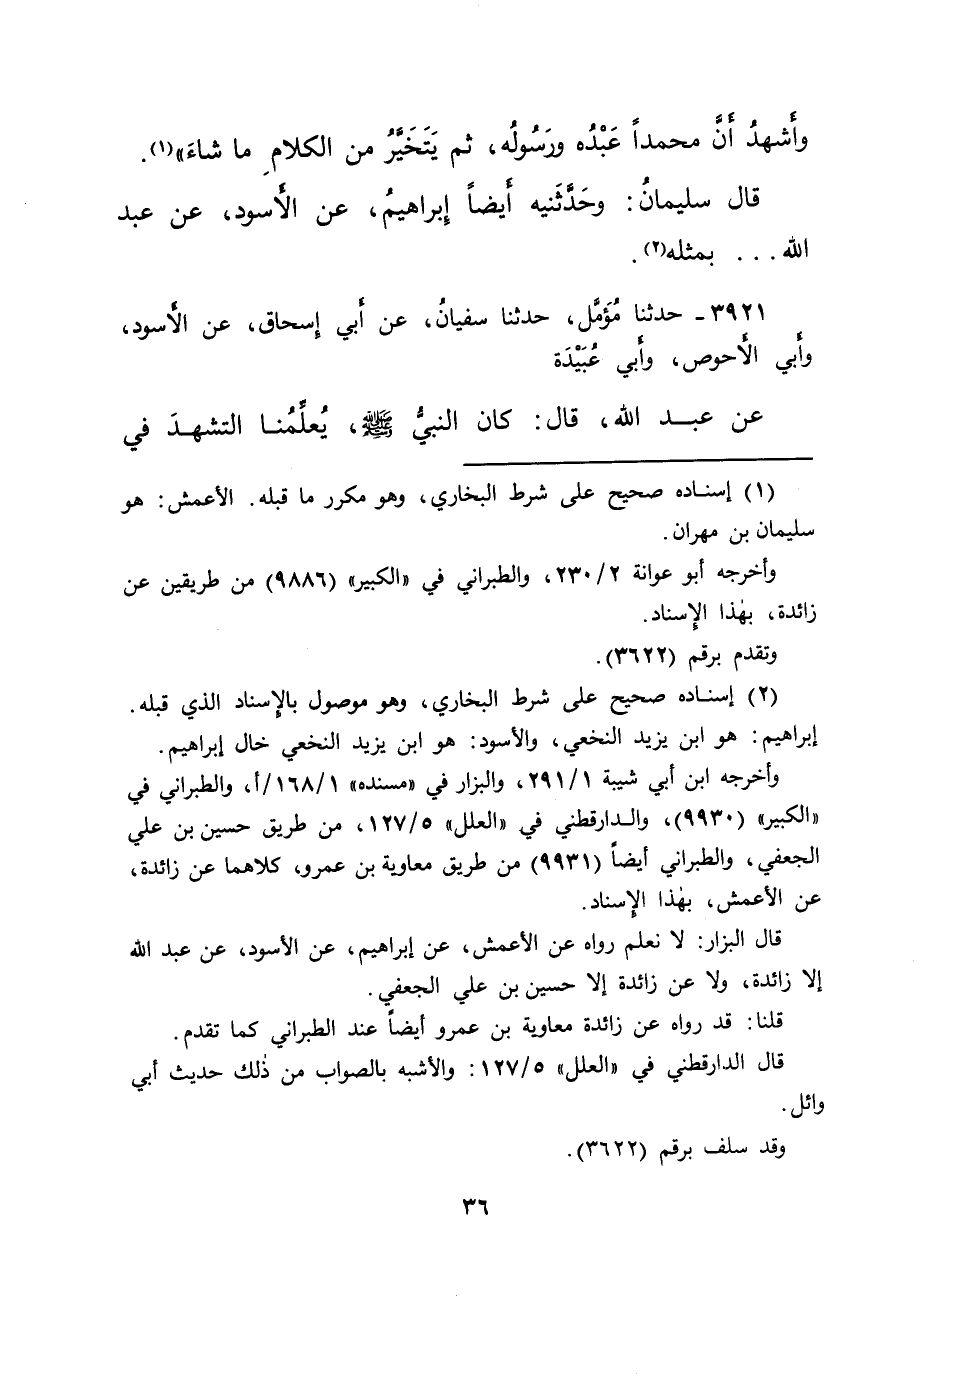 وأَشهدُ أَنَّ محمداً عَبْدُه ورَسُولُه، ثم يَتَخَيَّرُ من الكلامِ ما شاءَ»(١).
قال سليمانُ: وحَدَّثَنيه أَيضاً إبراهيمُ، عن الأَسود، عن عبد
الله... بمثله(٢).
٣٩٢١ـ حدثنا مُؤَمَّل، حدثنا سفيانُ، عن أَبي إسحاق، عن الأَسود،
وأَبي الأَحوص، وأَبي عُبَيْدَة
عن عبد الله، قال: كان النبيُّ ﷺ، يُعلِّمُنا التشهدَ في
(١) إسناده صحيح على شرط البخاري، وهو مكرر ما قبله. الأعمش: هو
سليمان بن مهران.
وأخرجه أبو عوانة ٢/ ٢٣٠، والطبراني في «الكبير» (٩٨٨٦) من طريقين عن
زائدة، بهٰذا الإسناد.
وتقدم برقم (٣٦٢٢).
(٢) إسناده صحيح على شرط البخاري، وهو موصول بالإسناد الذي قبله.
إبراهيم: هو ابن يزيد النخعي، والأسود: هو ابن يزيد النخعي خال إبراهيم.
وأخرجه ابن أبي شيبة ١/ ٢٩١، والبزار في «مسنده» ١/ ١٦٨/ أ، والطبراني في
«الكبير» (٩٩٣٠)، والدارقطني في «العلل» ٥/ ١٢٧، من طريق حسين بن علي
الجعفي، والطبراني أيضاً (٩٩٣١) من طريق معاوية بن عمرو، كلاهما عن زائدة،
عن الأعمش، بهٰذا الإسناد.
قال البزار: لا نعلم رواه عن الأعمش، عن إبراهيم، عن الأسود، عن عبد الله
إلا زائدة، ولا عن زائدة إلا حسين بن علي الجعفي.
قلنا: قد رواه عن زائدة معاوية بن عمرو أيضاً عند الطبراني كما تقدم.
قال الدارقطني في «العلل» ٥/ ١٢٧: والأشبه بالصواب من ذٰلك حديث أبي
وائل.
وقد سلف برقم (٣٦٢٢).
٣٦